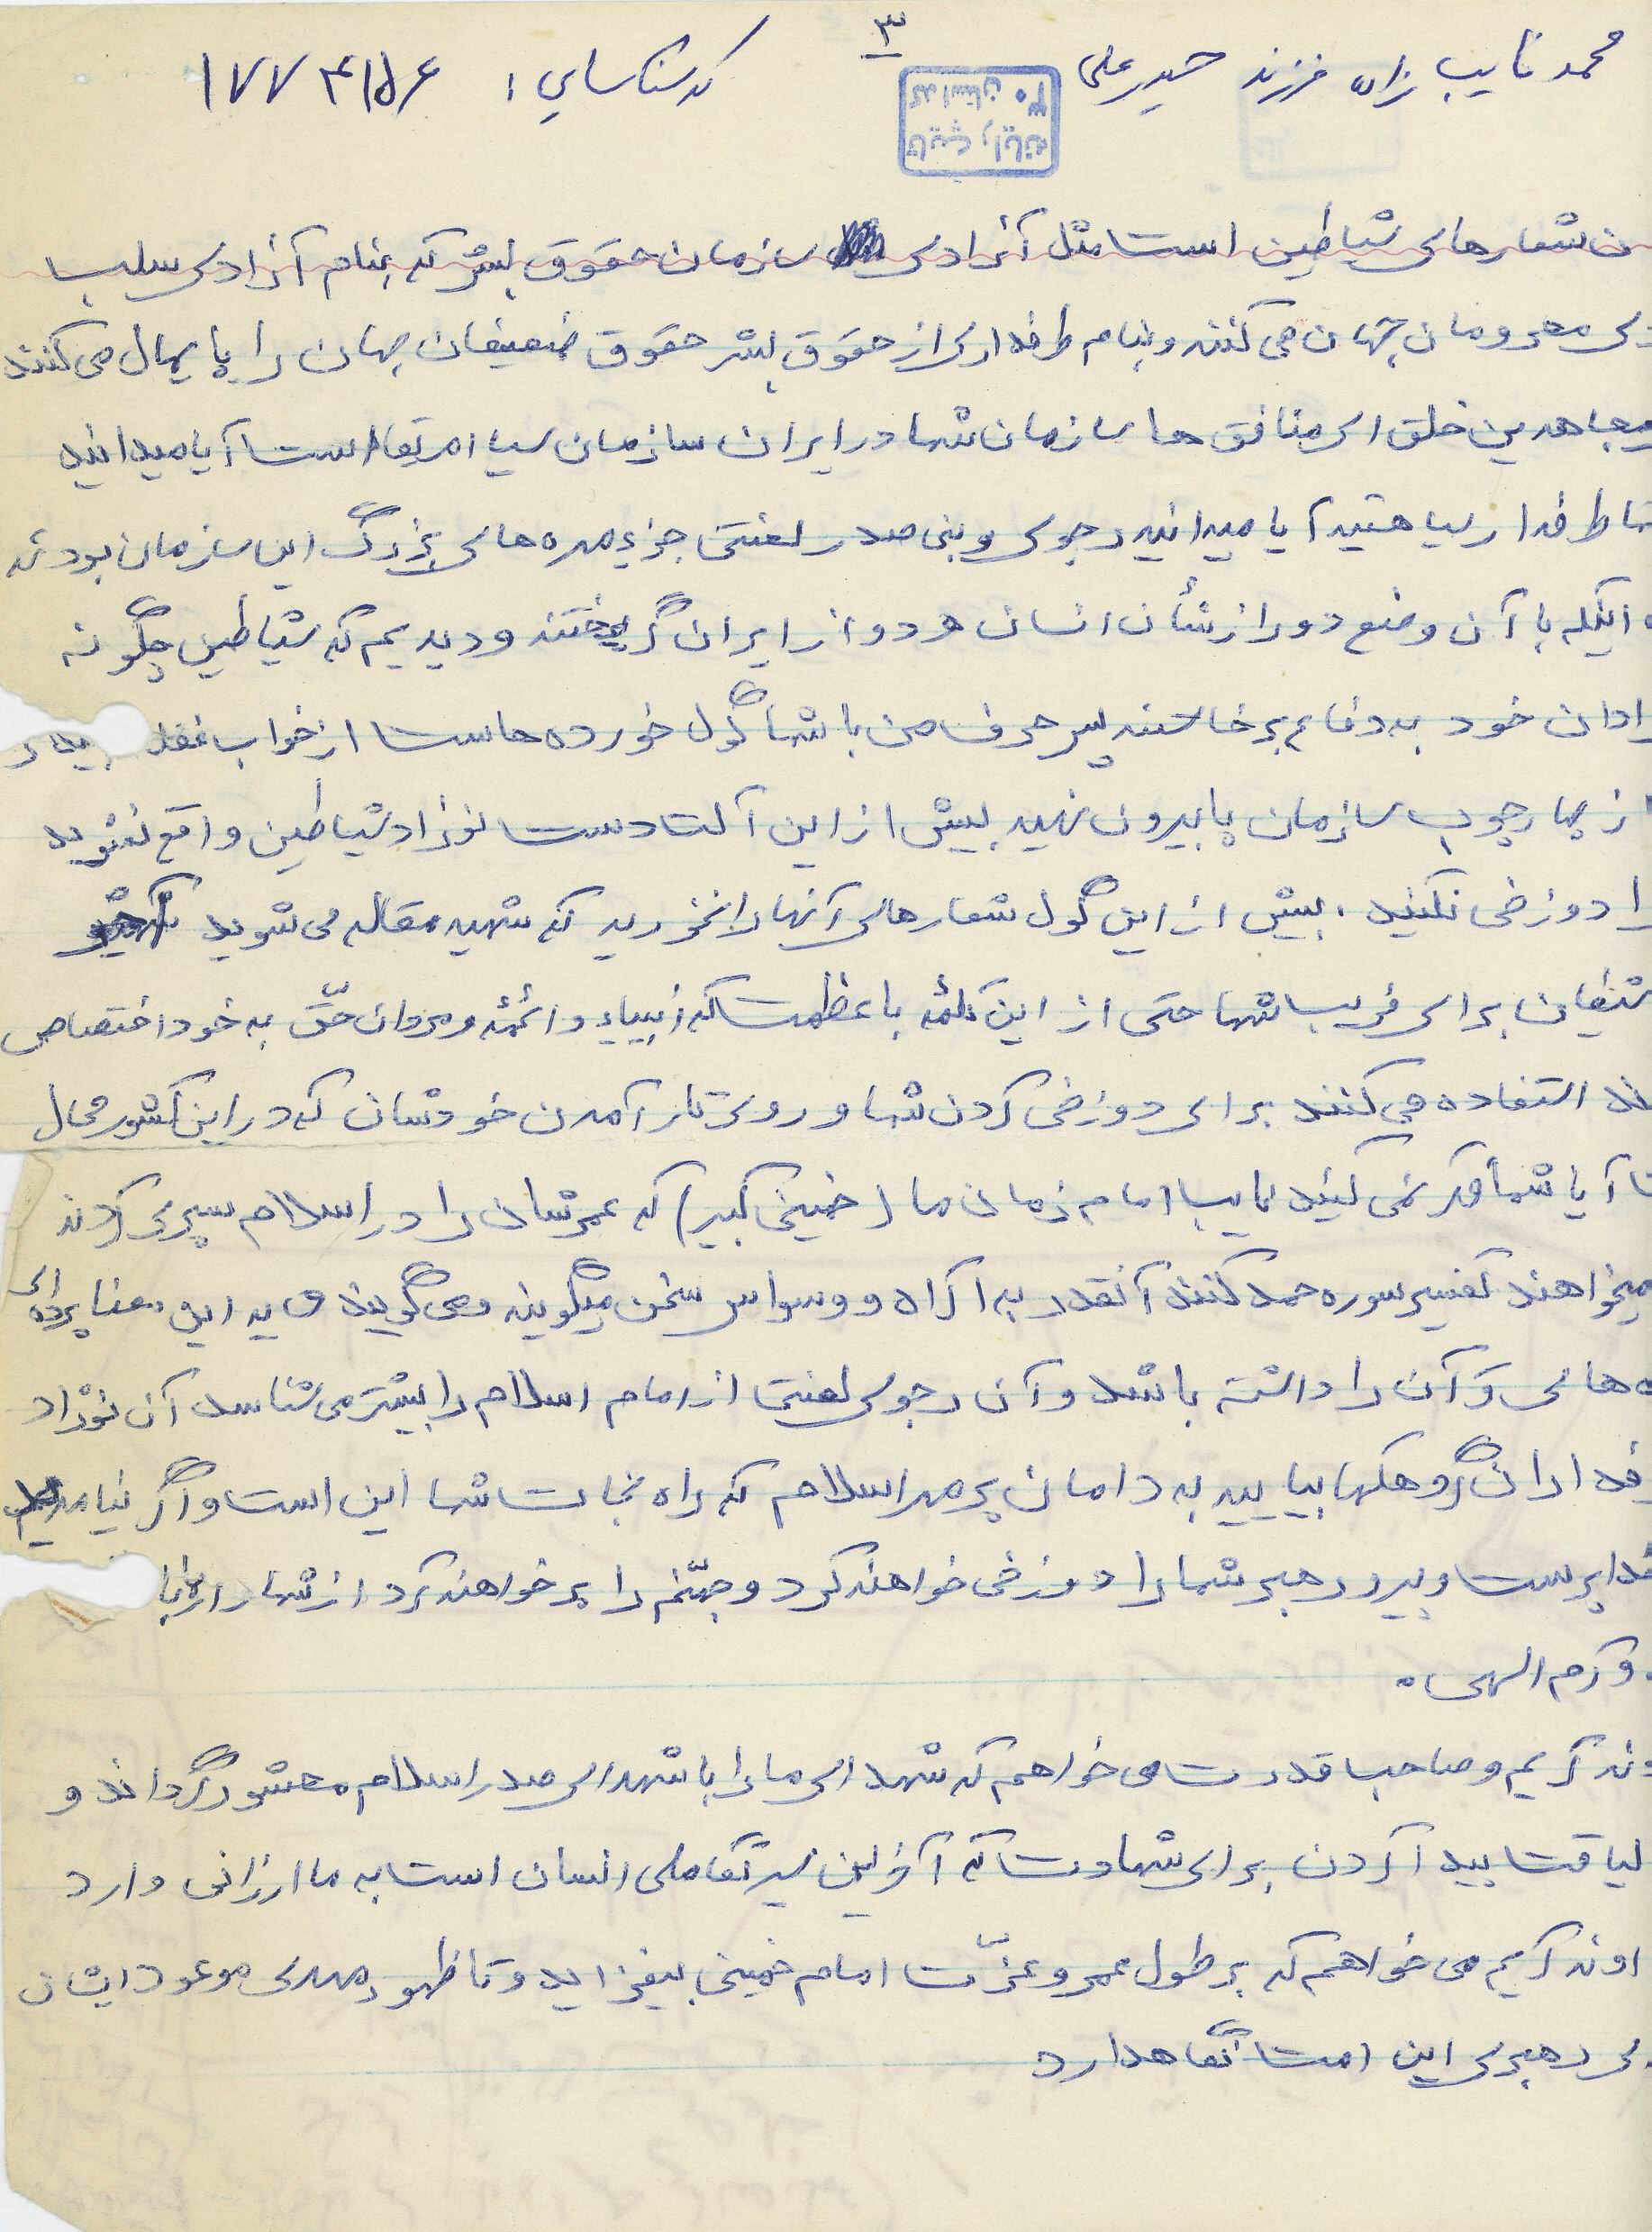 ۳
محمد نایب زاده فرزند حیدر علی کد شناسایی: ۱۷۷۳۱۵۶
تایپ رایانه
کد استان ۳۰
شعارهای شیاطین است مثل آزادی سازمان حقوق بشر که بنام آزادی سلب
محرومان جهان می کنند و بنام طرفداری از حقوق بشر حقوق ضعیفان جهان را پایمال می کنند
مجاهدین خلق ای منافق ها سازمان شما در ایران سازمان سیا امریکا است آیا میدانید
طرفدار سیا هستید آیا میدانید رجوی و بنی صدر لعنتی جزء مهره های بزرگ این سازمان بودند
اینکه با آن وضع دور از شأن انسان هر دو از ایران گریختند و دیدیم که شیاطین چگونه
خود به دفاع برخاستند پس حرف من با شما گول خورده هاست از خواب
از چهارچوب سازمان پا بیرون نهید بیش از این آلت دست نوزاد شیاطین واقع نشوید
را دوزخی نکنید. بیش از این گول شعارهای آنها را نخورید که شهید مقاله می شوید
برای فریب شما حتی از این کلمهٔ با عظمت که انبیاء و ائمهٔ و مردان حقّ به خود اختصاص
استفاده می کنند برای دوزخی کردن شما و روی کار آمدن خودشان که در این کشور محال
آیا شما فکر نمی کنید نایب امام زمان ما (خمینی کبیر) که عمرشان را در اسلام سپری کردند
میخواهند تفسیر سوره حمد کنند آنقدر به اکراه و وسواس سخن میگویند و می گویند این معنا
های قرآن را داشته باشد و آن رجوی لعنتی از امام اسلام را بیشتر می شناسد آن نوزاد
گروهکها بیایید به دامان پر مهر اسلام که راه نجات شما این است و اگر نیامدید
خدا پرست و پیرو رهبر شما را دوزخی خواهند کرد و جهنّم را پر خواهند کرد از شما
و کرم الهی.
کریم و صاحب قدرت می خواهم که شهدای ما را با شهدای صدر اسلام محشور گرداند و
لیاقت پیدا کردن برای شهادت که آخرین سیر تکاملی انسان است به ما ارزانی دارد
کریم می خواهم که بر طول عمر و عزّت امام خمینی بیفزاید و تا ظهور مهدی موعود ایشان
رهبری این امت نگاهدارد